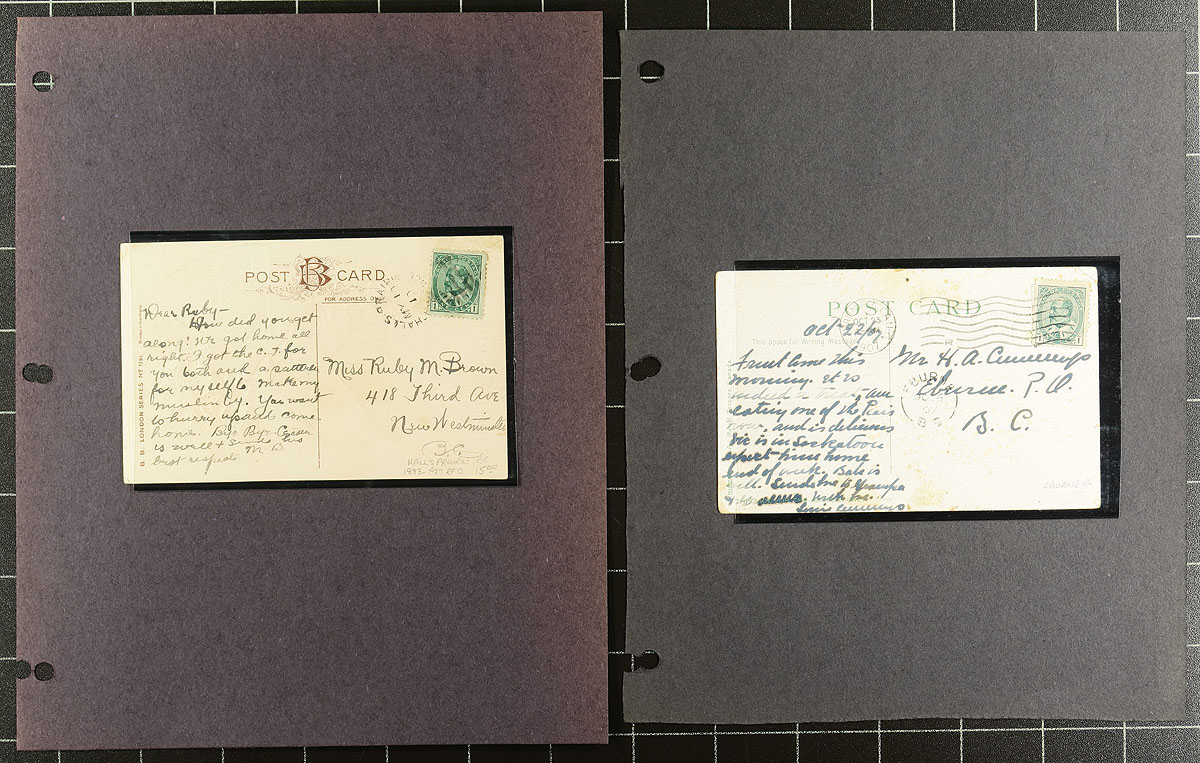 POST B CARD
FOR ADDRESS ONLY
Dear Ruby—
How did you get
along? We got home all
right. I got the C.T. for
you both and a pattern
for myself to make my
muslin by. You want
to hurry up and come
home.
is well & sends his
best respects M B
B B LONDON SERIES
Miss Ruby M. Brown
418 Third Ave
New Westminster
B.C.
HALLS PRAIRIE, BC
15.00
POST CARD
This Space for Writing Messages
Oct 22/
Fruit came this
morning. it is
indeed
eating one of the Pears
now, and is delicious
Sir is in Saskatoon
expect him home
end of week. Babe is
well. Sends love to Grandpa
with love.
Cummings
Mr H. A. Cummings
Eburne. P. O.
B. C.
EBURNE